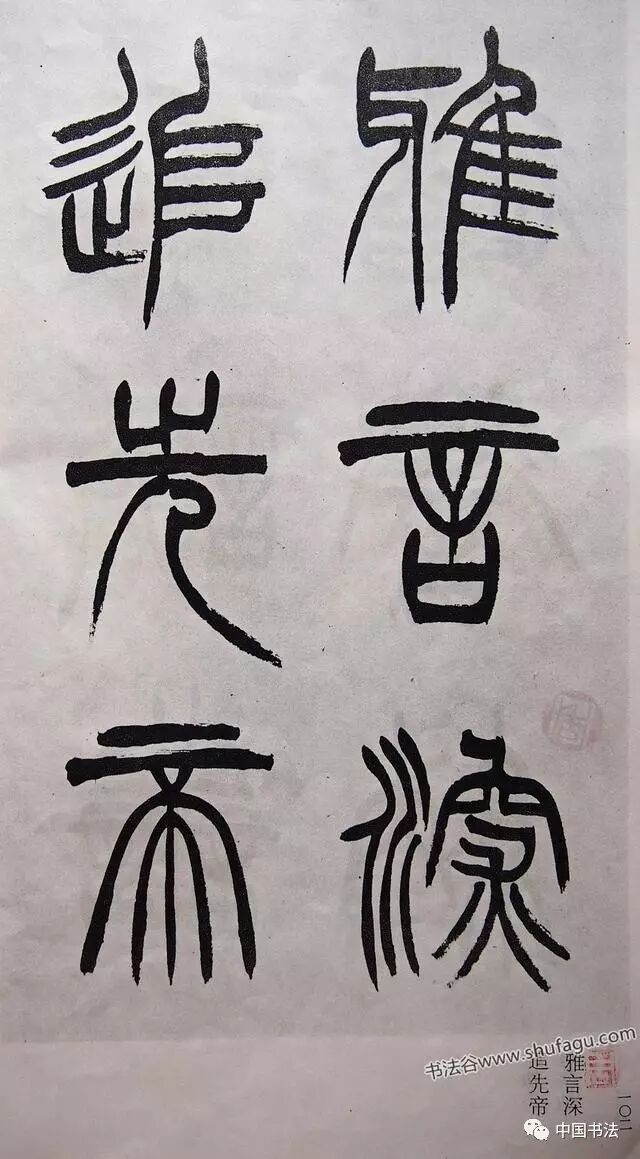 雅言深
追先帝
书法谷www.shufagu.com
雅言深
追先帝
一〇二
中国书法